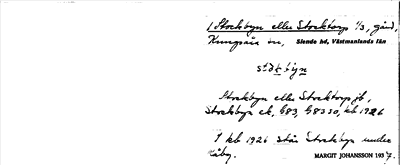 1 Stockbyn eller Stocktorp 1/3, gård,
Kungsåra sn, Siende hd, Västmanlands län
Stockbyn eller Stocktorp jb,
Stockbyn ek, G83, G83 SO, kb 1926
I kb 1926 står Stockbyn under
MARGIT JOHANSSON 1937.